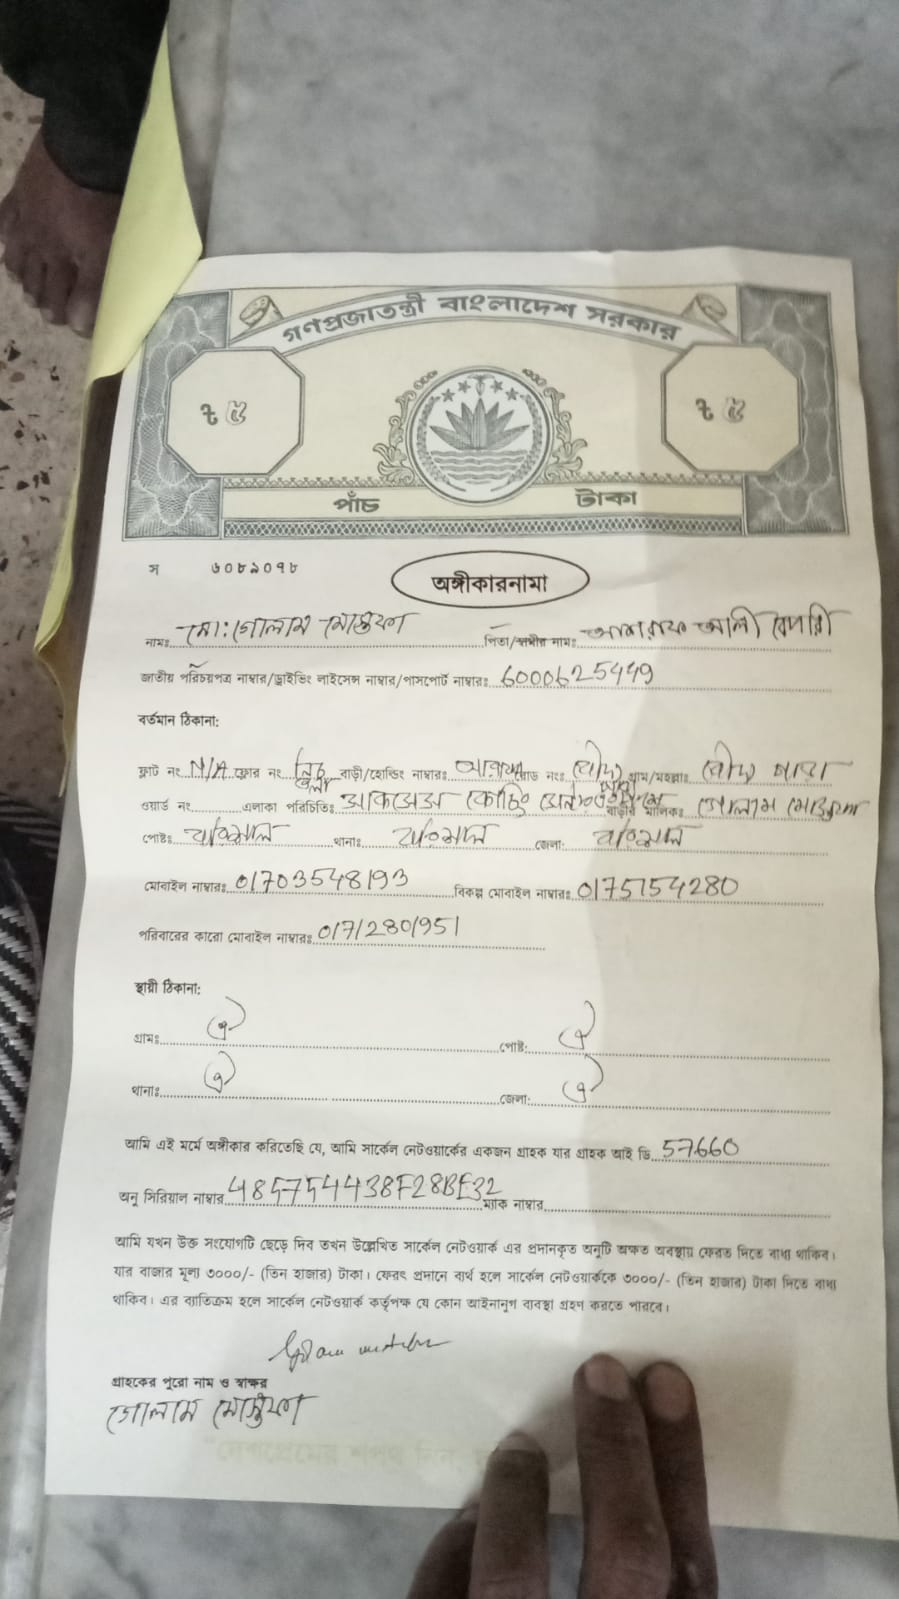 গণপ্রজাতন্ত্রী বাংলাদেশ সরকার
৳ ৫ ৳ ৫
পাঁচ টাকা
স ৬০৮৯০৭৮
অঙ্গীকারনামা
নামঃ মো: গোলাম মোস্তফা পিতা/স্বামীর নামঃ আশরাফ আলী বেপারী
জাতীয় পরিচয়পত্র নাম্বার/ড্রাইভিং লাইসেন্স নাম্বার/পাসপোর্ট নাম্বারঃ 6000625449
বর্তমান ঠিকানা:
ফ্লাট নং N/A ফ্লোর নং নিচ তলা বাড়ী/হোল্ডিং নাম্বারঃ রোড নং: গ্রাম/মহল্লাঃ পাড়া
ওয়ার্ড নং এলাকা পরিচিতিঃ কোচিং বাড়ীর মালিকঃ গোলাম মোস্তফা
পোষ্টঃ বরিশাল থানাঃ বরিশাল জেলা: বরিশাল
মোবাইল নাম্বারঃ 01703548193 বিকল্প মোবাইল নাম্বারঃ 0175154280
পরিবারের কারো মোবাইল নাম্বারঃ 01712801951
স্থায়ী ঠিকানা:
গ্রামঃ ঐ পোষ্ট: ঐ
থানাঃ ঐ জেলা: ঐ
আমি এই মর্মে অঙ্গীকার করিতেছি যে, আমি সার্কেল নেটওয়ার্কের একজন গ্রাহক যার গ্রাহক আই ডি 57660
অনু সিরিয়াল নাম্বার 485754438F28BE32 ম্যাক নাম্বার
আমি যখন উক্ত সংযোগটি ছেড়ে দিব তখন উল্লেখিত সার্কেল নেটওয়ার্ক এর প্রদানকৃত অনুটি অক্ষত অবস্থায় ফেরত দিতে বাধ্য থাকিব।
যার বাজার মূল্য ৩০০০/- (তিন হাজার) টাকা। ফেরৎ প্রদানে ব্যর্থ হলে সার্কেল নেটওয়ার্ককে ৩০০০/- (তিন হাজার) টাকা দিতে বাধ্য
থাকিব। এর ব্যতিক্রম হলে সার্কেল নেটওয়ার্ক কর্তৃপক্ষ যে কোন আইনানুগ ব্যবস্থা গ্রহণ করতে পারবে।
গ্রাহকের পুরো নাম ও স্বাক্ষর
গোলাম মোস্তফা
"দেশপ্রেমের শপথ নিন,